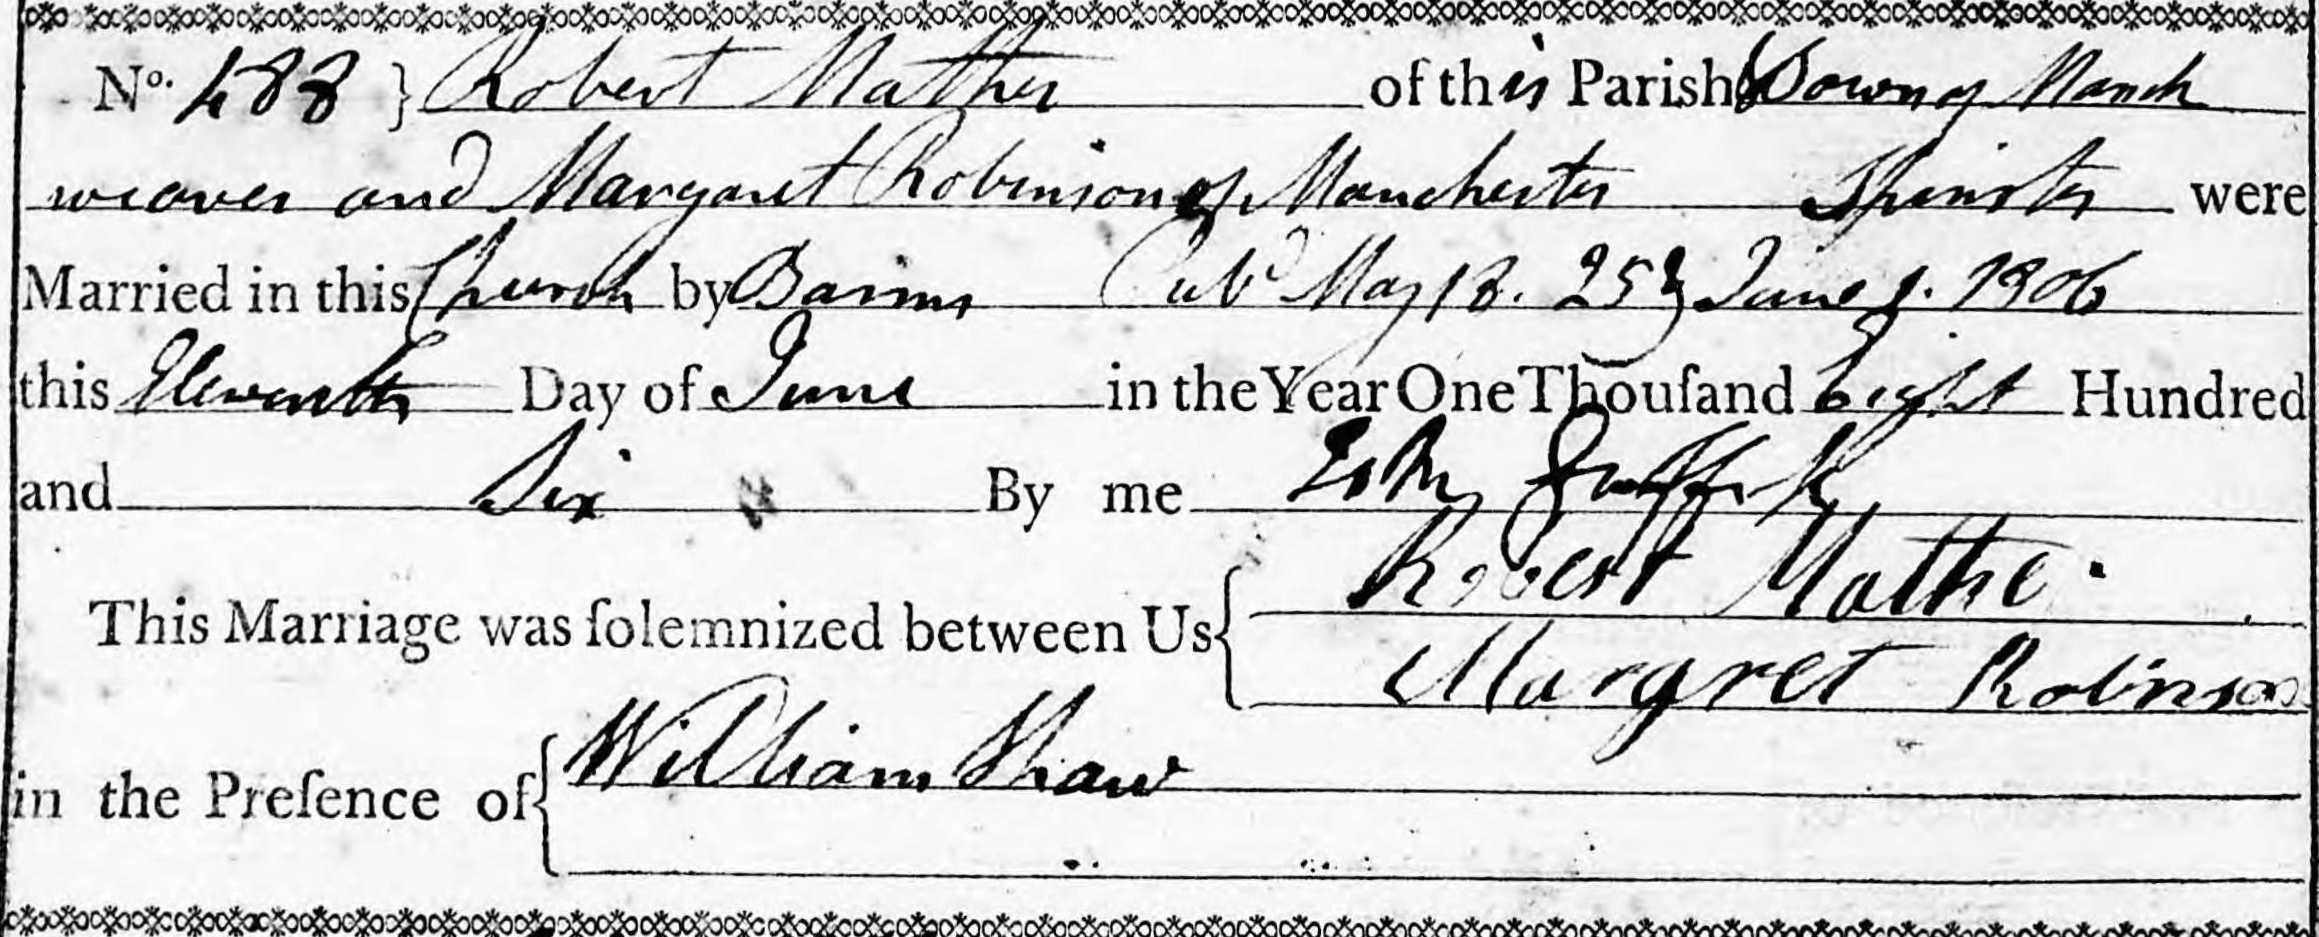 No. 488 } Robert Mather of this Parish & Town of Manch
weaver and Margaret Robinson of Manchester Spinster were
Married in this Church by Banns Pubd May 18. 25 & June 1. 1806
this Eleventh Day of June in the Year One Thouſand Eight Hundred
and Six By me
This Marriage was ſolemnized between Us { Robert Mather
Margret Robinson
in the Preſence of { William Shaw